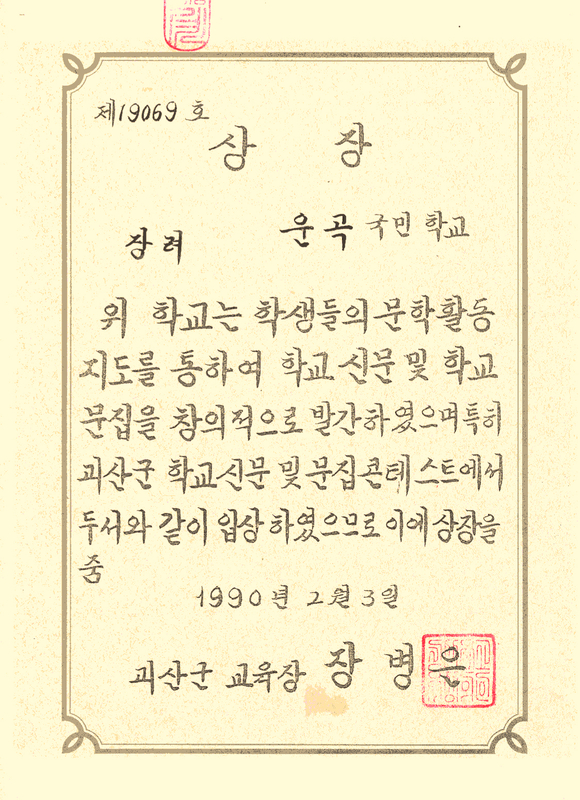 제19069 호
상 장
운곡 국민 학교
장려
위 학교는 학생들의 문학활동
지도를 통하여 학교 신문 및 학교
문집을 창의적으로 발간하였으며 특히
괴산군 학교신문 및 문집콘테스트에서
두서와 같이 입상 하였으므로 이에 상장을
줌
1990년 2월 3일
괴산군 교육장 장 병 은